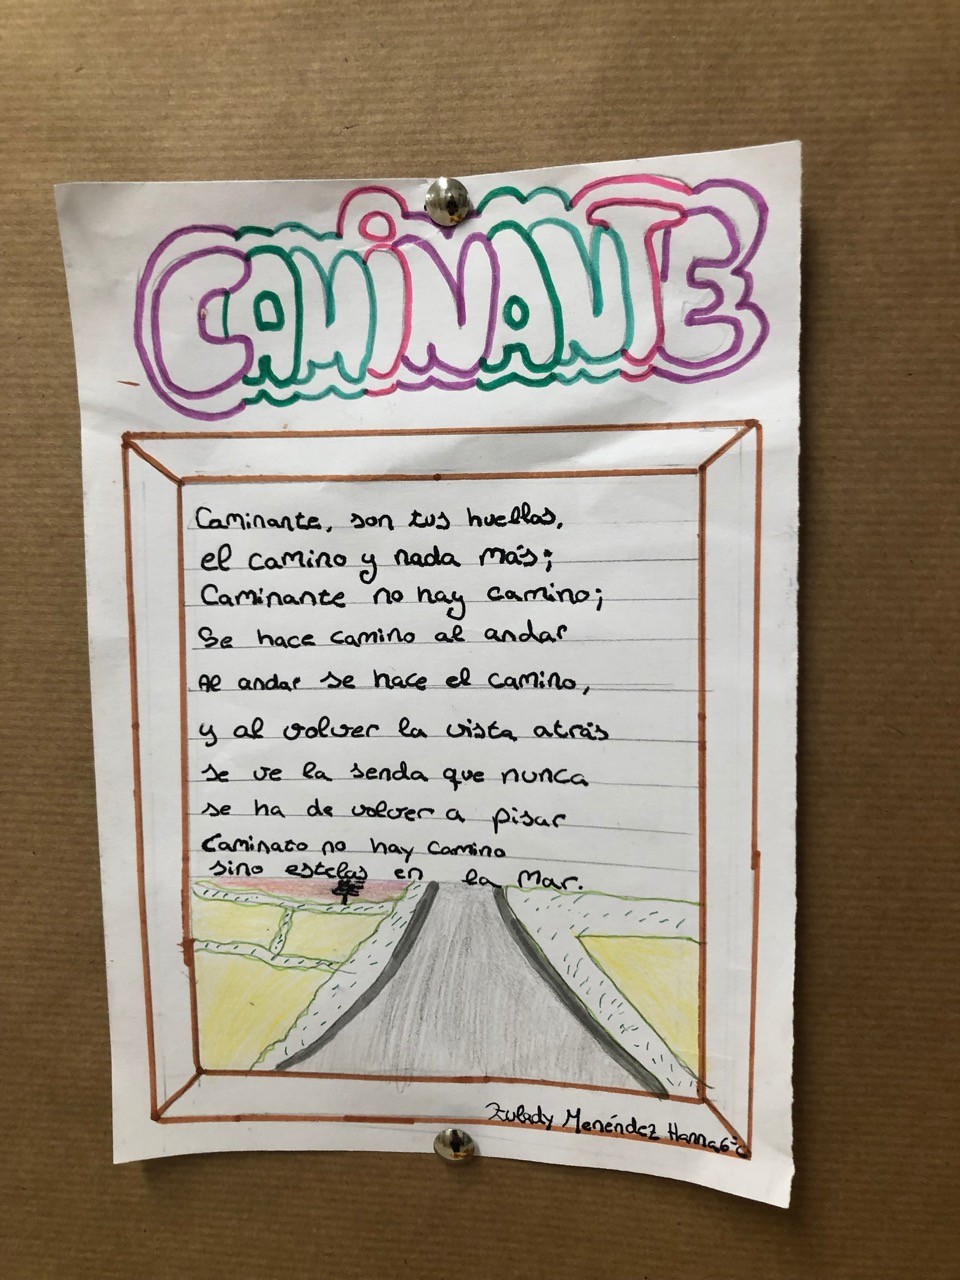 CAMINANTE
Caminante, son tus huellas,
el camino y nada más;
Caminante no hay camino;
Se hace camino al andar
Al andar se hace el camino,
y al volver la vista atrás
se ve la senda que nunca
se ha de volver a pisar
Caminato no hay camino
sino estelas en la mar.
Menéndez Hanna 6ºc